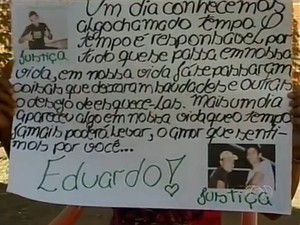 Um dia conhecemos
algo chamado tempo. O
tempo é responsável por
tudo que se passa em nossa
vida, em nossa vida já se passaram
coisas que deixaram saudades e outras
o desejo de esquece-las. Mais um dia
apareceu algo em nossa vida que o tempo
jamais poderá levar, o amor que senti-
mos por você...
Eduardo!
JUSTIÇA
JUSTIÇA